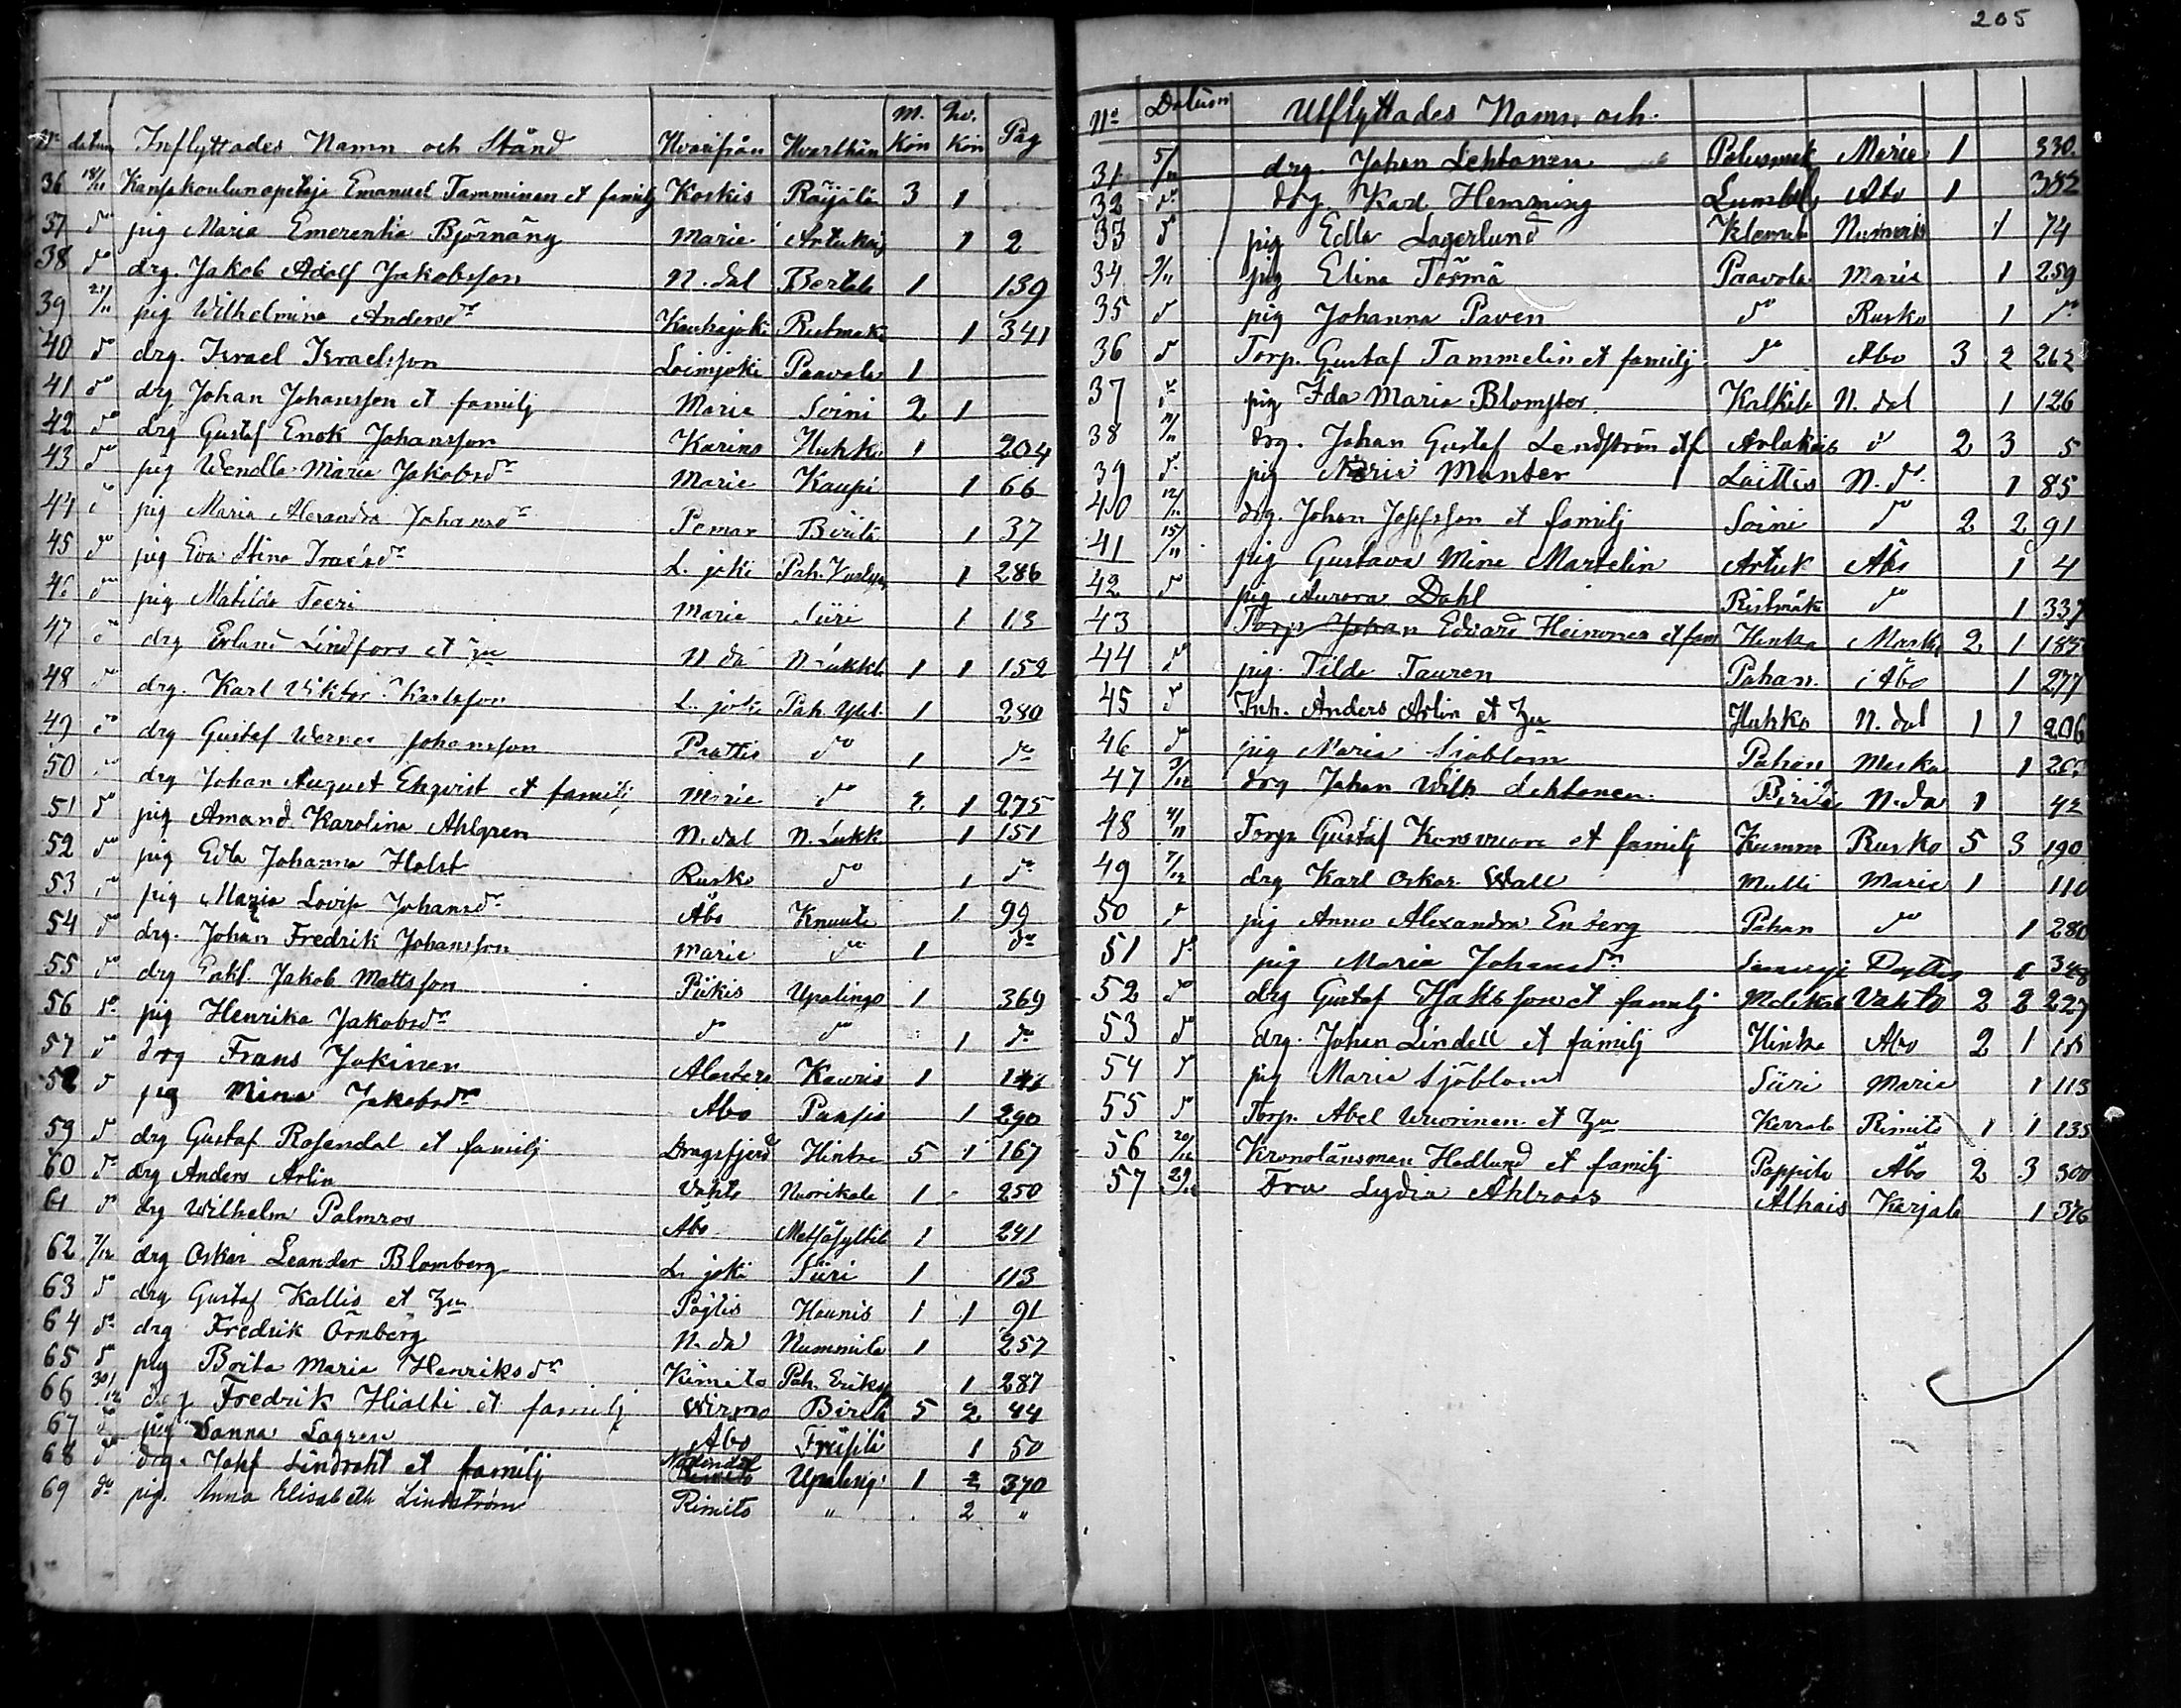 No datum Inflyttades Namn och Stånd Hvarifrån Hvarthän M. Kön Qv. Kön Pag
36 18/11 Kansakoulunopettaja Emanuel Tamminen et familj Koskis Raijala 3 1
37 do pig Maria Emerentia Björnäng Marie Artukais 1 2
38 do drg. Jakob Adolf Jakobsson N. dal Bertila 1 139
39 21/11 pig Wilhelmina Andersdr Kauhajoki Ristmäk 1 341
40 do drg. Israel Israelsson Loimjoki Paavola 1
41 do drg Johan Johansson et familj Maria Soini 2 1
42 do drg Gustaf Enok Johansson Karins Huhko 1 204
43 do pig Wendla Maria Jakobsdr Marie Kaupi 1 66
44 do pig Maria Alexandra Johansdr Pemar Birila 1 37
45 do pig Eva Stina Isracsdr L. joki Pah. 1 286
46 do pig Matilda Teeri Marie Siiri 1 113
47 do drg Erland Lindfors et Zu N da N Lukkl 1 1 152
48 do drg. Karl Viktor Karlsson L. joki Pah 1 280
49 do drg Gustaf Werner Johansson Prattis do 1 do
50 do drg Johan August Ekqvist et familj Marie do 2 1 275
51 do pig Amand. Karolina Ahlgren N. dal N. Lukk 1 151
52 do pig Edla Johanna Holst Rusko do 1 do
53 do pig Maria Lovisa Johansdr Åbo Knuuti 1 99
54 do drg. Johan Fredrik Johansson Marie do 1 do
55 do drg Jakob Mattsson Piikis Upalingo 1 369
56 do pig Henrika Jakobsdr do do 1 do
57 do drg Frans Jokinen Alastaro Kauris 1 146
58 do pig Mina Jakobsdr Abo Pansio 1 290
59 do drg Gustaf Rosendal et familj Dragsfjerd Hintsa 5 1 167
60 do drg Anders Arlin Vahto Nuorikala 1 250
61 do drg Wilhelm Palmros Åbo Metsäkyltil 1 241
62 7/12 drg Oskar Leander Blomberg L. joki Siiri 1 113
63 do drg Gustaf Kallis et Zu Pöjtis Haunis 1 1 91
64 do drg Fredrik Örnberg N. da Nummila 1 257
65 do pig Brita Maria Henriksdr Kimito Pah. Eriksg 1 287
66 30/12 drg Fredrik Hialti et familj Wirmo Birila 5 2 44
67 do pig Sanna Lagren Abo Friisilä 1 50
68 do drg. Josef Lindroht et familj Nådendal Upaling 1 2 370
69 do pig. Anna Elisabeth Lindström Rimito " 2 "
205
No Datum Utflyttades Namn och
31 5/11 drg. Johan Lehtonen Marie 1 330
32 do drg. Karl Hemming Abo 1 382
33 do pig Edla Lagerlund Klemi 1 74
34 9/11 pig Elina Törmä Paavola Maria 1 259
35 do pig Johanna Paven do Rusko 1 do
36 do Torp. Gustaf Tammelin et familj do Abo 3 2 262
37 do pig Ida Maria Blomster Kalkila N. dal 1 126
38 11/11 drg. Johan Gustaf Lendström et f Artukais do 2 3 5
39 do pig Maria Manter Laittis N. d. 1 85
40 12/11 drg. Johan Josefsson et familj Soini do 2 2 91
41 15/11 pig Gustava Mina Martelin Artuk Åbo 1 4
42 do pig Aurora Dahl Ristmäk do 1 337
43 Torp Johan Edvard Heinonen et fam Hintsa Masku 2 1 183
44 do pig. Tilda Tauren Pahan. Åbo 1 277
45 do Inh. Anders Arlin et Zu Huhko N. dal 1 1 206
46 do pig Maria Sjöblom Pahan Masku 1
47 3/12 drg Johan Wilh Lehtonen Birila N. da 1 42
48 4/12 Torp Gustaf Korsvuore et familj Kumm Rusko 5 3 190
49 7/12 drg Karl Oskar Wall Mulli Marie 1 110
50 do pig Anna Alexandra Enberg Pahan do 1 280
51 do pig Maria Johansdr Pöytis 1 348
52 do drg Gustaf Isaksson et familj Metsäk Vahto 2 2 227
53 do drg. Johan Lindell et familj Hintsa Abo 2 1
54 do pig Maria Sjöblom Siiri Maria 1 113
55 do Torp. Abel Wuorinen et Zu Kerrola Rimito 1 1 135
56 20/12 Kronolänsman Hedlund et familj Pappila Åbo 2 3 300
57 29/12 Fru Lydia Ahlroos Alhais Karjala 1 376